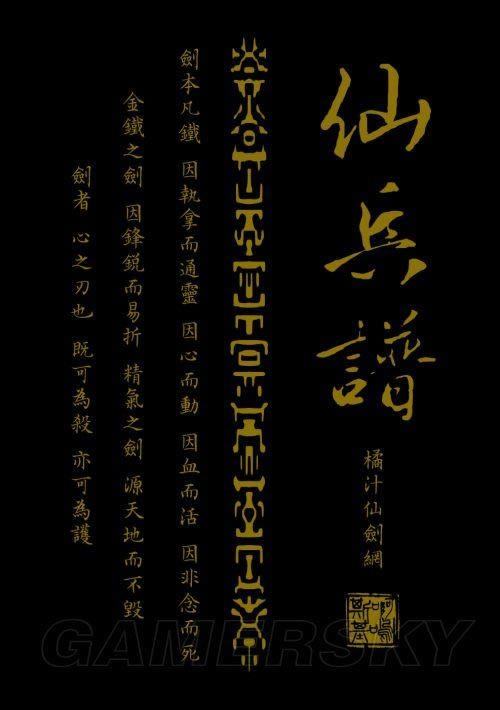 仙兵譜
橘汁仙劍網
劍本凡鐵 因執拿而通靈 因心而動 因血而活 因非念而死
金鐵之劍 因鋒鋭而易折 精氣之劍 源天地而不毀
劍者 心之刃也 既可為殺 亦可為護
GAMERSKY